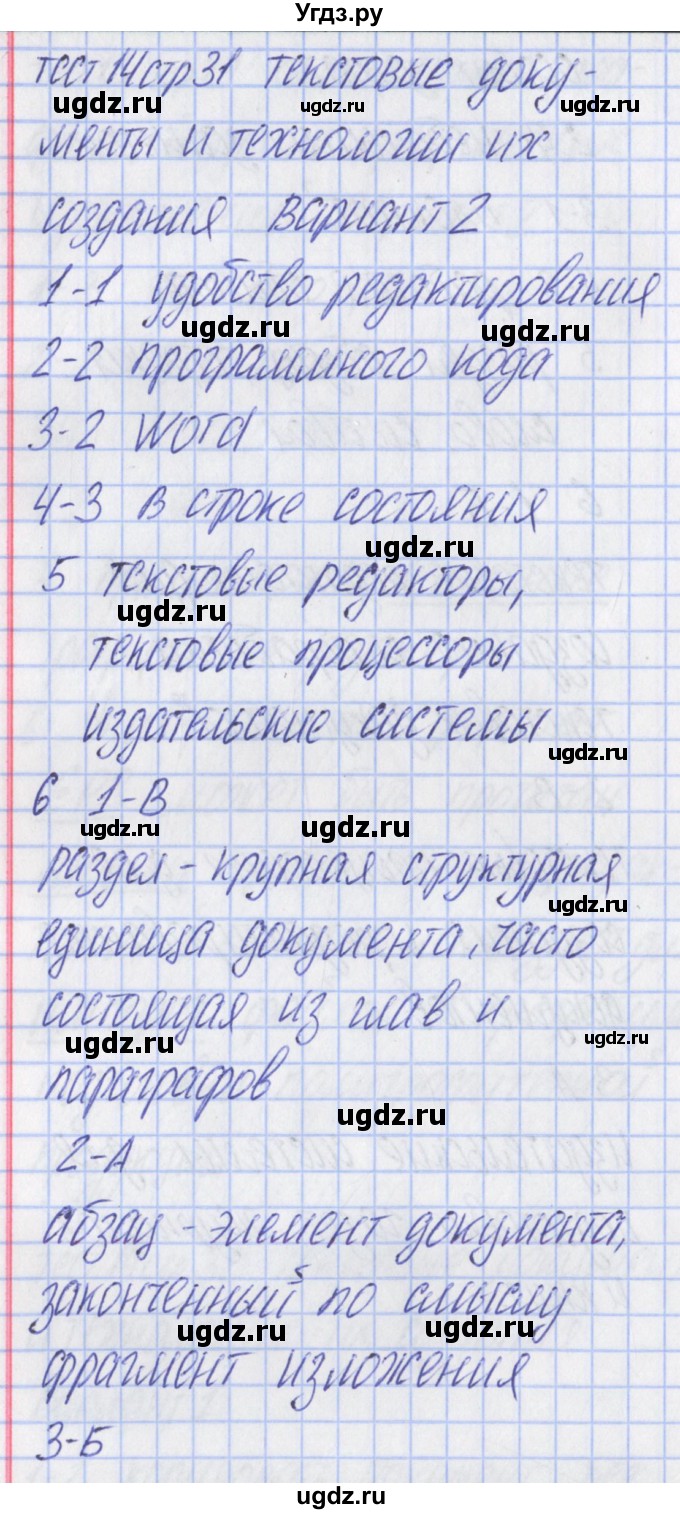 Угдз.ру
тест 14 стр 31 текстовые доку-
ugdz.ru ugdz.ru ugdz.ru
менты и технологии их
создания вариант 2
1-1 удобство редактирования
ugdz.ru ugdz.ru
2-2 программного кода
3-2 Word
4-3 в строке состояния
ugdz.ru
5 текстовые редакторы,
ugdz.ru
текстовые процессоры
издательские системы
ugdz.ru
6 1-В
ugdz.ru ugdz.ru
раздел - крупная структурная
ugdz.ru
единица документа, часто
состоящая из глав и
ugdz.ru ugdz.ru
параграфов
ugdz.ru
2-А
абзац - элемент документа,
законченный по смыслу
ugdz.ru ugdz.ru
фрагмент изложения
3-Б
ugdz.ru